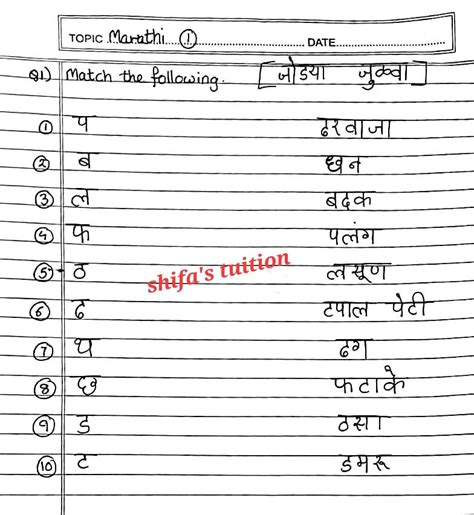 TOPIC Marathi ① DATE
Q1) Match the following. [जोडया जुळवा]
① प दरवाजा
② ब
③ ल बदक
④ फ पलंग
⑤ ठ लसूण
shifa's tuition
⑥ ढ टपाल पेटी
⑦ थ ढग
⑧ छ फटाके
⑨ ड ठसा
⑩ ट डमरू